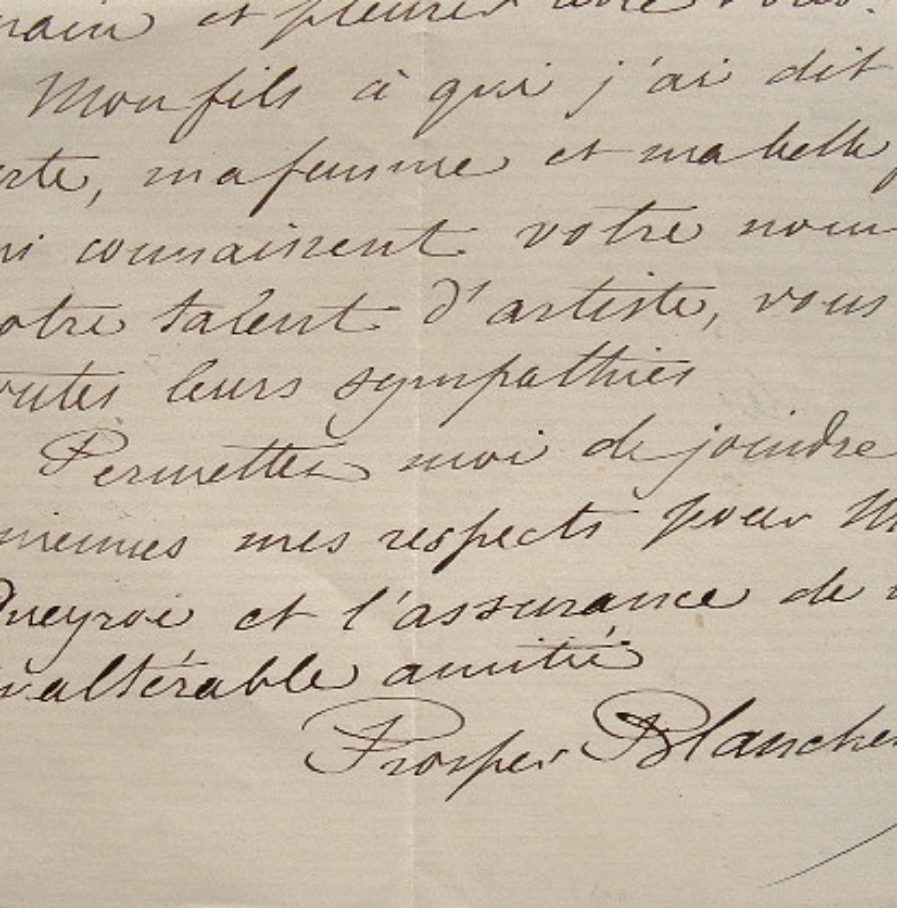 main et pleurer avec vous.
Mon fils à qui j'ai dit
erte, ma femme et ma belle
ui connaissent votre nom
otre talent d'artiste, vous
outes leurs sympathies
Permettez moi de joindre
miennes mes respects pour M
Queyroi et l'assurance de
altérable amitié
Prosper Blanche